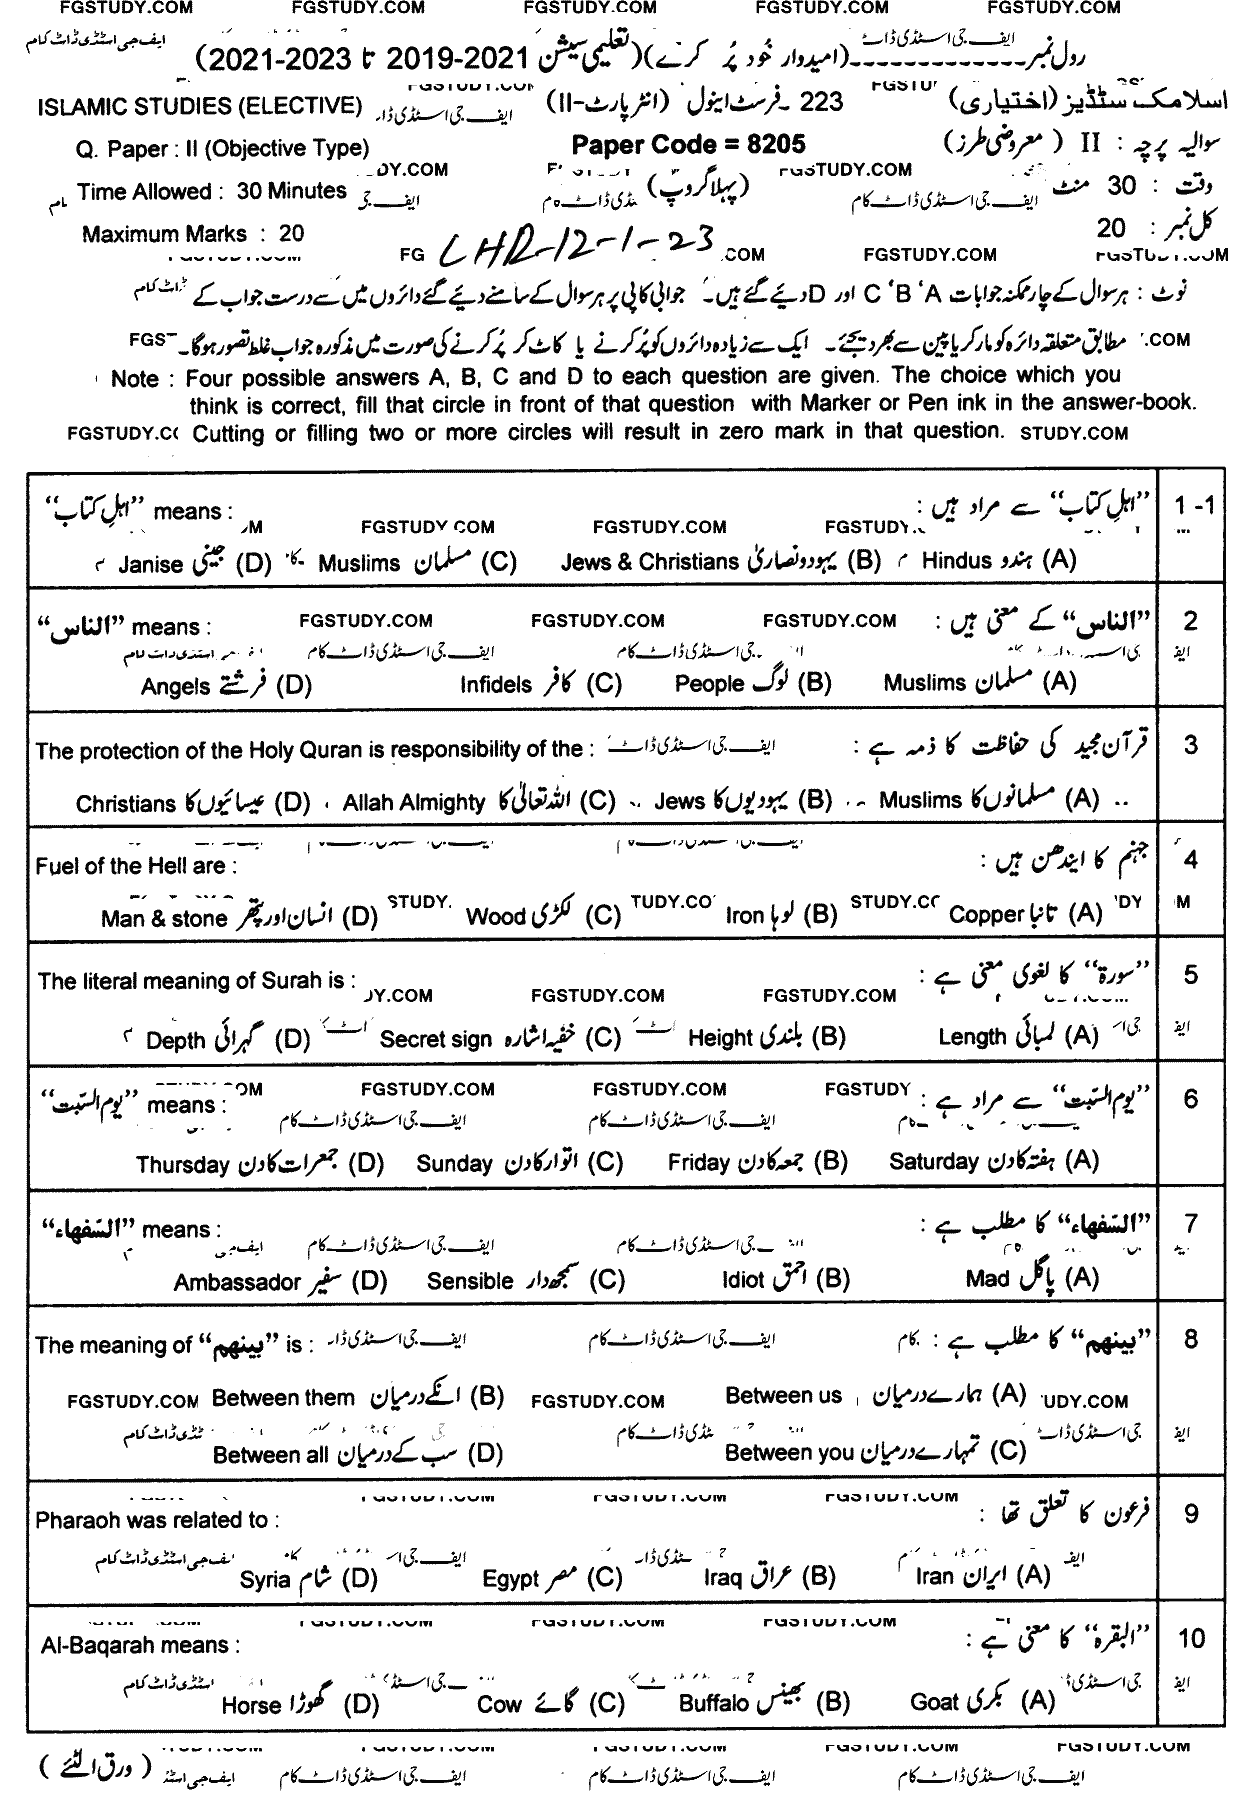 FGSTUDY.COM FGSTUDY.COM FGSTUDY.COM FGSTUDY.COM FGSTUDY.COM
رول نمبر-------------(امیدوار خُود پُر کرے)(تعلیمی سیشن 2021-2019 تا 2023-2021)
ایف جی اسٹڈی ڈاٹ کام
ISLAMIC STUDIES (ELECTIVE) 223 ـ فرسٹ اینول (انٹر پارٹ-II) اسلامک سٹڈیز (اختیاری)
Q. Paper : II (Objective Type) Paper Code = 8205 سوالیہ پرچہ : II (معروضی طرز)
Time Allowed : 30 Minutes (پہلا گروپ) وقت : 30 منٹ
Maximum Marks : 20 کل نمبر : 20
LHR-12-1-23
FGSTUDY.COM
نوٹ : ہر سوال کے چار ممکنہ جوابات A، B، C اور D دیئے گئے ہیں۔ جوابی کاپی پر ہر سوال کے سامنے دیئے گئے دائروں میں سے درست جواب کے
مطابق متعلقہ دائرہ کو مارکر یا پین سے بھر دیجئے۔ ایک سے زیادہ دائروں کو پُر کرنے یا کاٹ کر پُر کرنے کی صورت میں مذکورہ جواب غلط تصور ہوگا۔
Note : Four possible answers A, B, C and D to each question are given. The choice which you
think is correct, fill that circle in front of that question with Marker or Pen ink in the answer-book.
Cutting or filling two or more circles will result in zero mark in that question.
1-1 "اہلِ کتاب" سے مراد ہیں : "اہلِ کتاب" means :
(A) ہندو Hindus (B) یہود و نصاریٰ Jews & Christians (C) مسلمان Muslims (D) جینی Janise
2 "الناس" کے معنی ہیں : "الناس" means :
(A) مسلمان Muslims (B) لوگ People (C) کافر Infidels (D) فرشتے Angels
3 قرآن مجید کی حفاظت کا ذمہ ہے : The protection of the Holy Quran is responsibility of the :
(A) مسلمانوں کا Muslims (B) یہودیوں کا Jews (C) اللہ تعالیٰ کا Allah Almighty (D) عیسائیوں کا Christians
4 جہنم کا ایندھن ہیں : Fuel of the Hell are :
(A) تانبا Copper (B) لوہا Iron (C) لکڑی Wood (D) انسان اور پتھر Man & stone
5 "سورۃ" کا لغوی معنی ہے : The literal meaning of Surah is :
(A) لمبائی Length (B) بلندی Height (C) خفیہ اشارہ Secret sign (D) گہرائی Depth
6 "یوم السّبت" سے مراد ہے : "یوم السّبت" means :
(A) ہفتہ کا دن Saturday (B) جمعہ کا دن Friday (C) اتوار کا دن Sunday (D) جمعرات کا دن Thursday
7 "السّفهاء" کا مطلب ہے : "السّفهاء" means :
(A) پاگل Mad (B) احمق Idiot (C) سمجھدار Sensible (D) سفیر Ambassador
8 "بینھم" کا مطلب ہے : The meaning of "بینھم" is :
(A) ہمارے درمیان Between us (B) انکے درمیان Between them
(C) تمہارے درمیان Between you (D) سب کے درمیان Between all
9 فرعون کا تعلق تھا : Pharaoh was related to :
(A) ایران Iran (B) عراق Iraq (C) مصر Egypt (D) شام Syria
10 "البقرہ" کا معنی ہے : Al-Baqarah means :
(A) بکری Goat (B) بھینس Buffalo (C) گائے Cow (D) گھوڑا Horse
(ورق الٹئے)